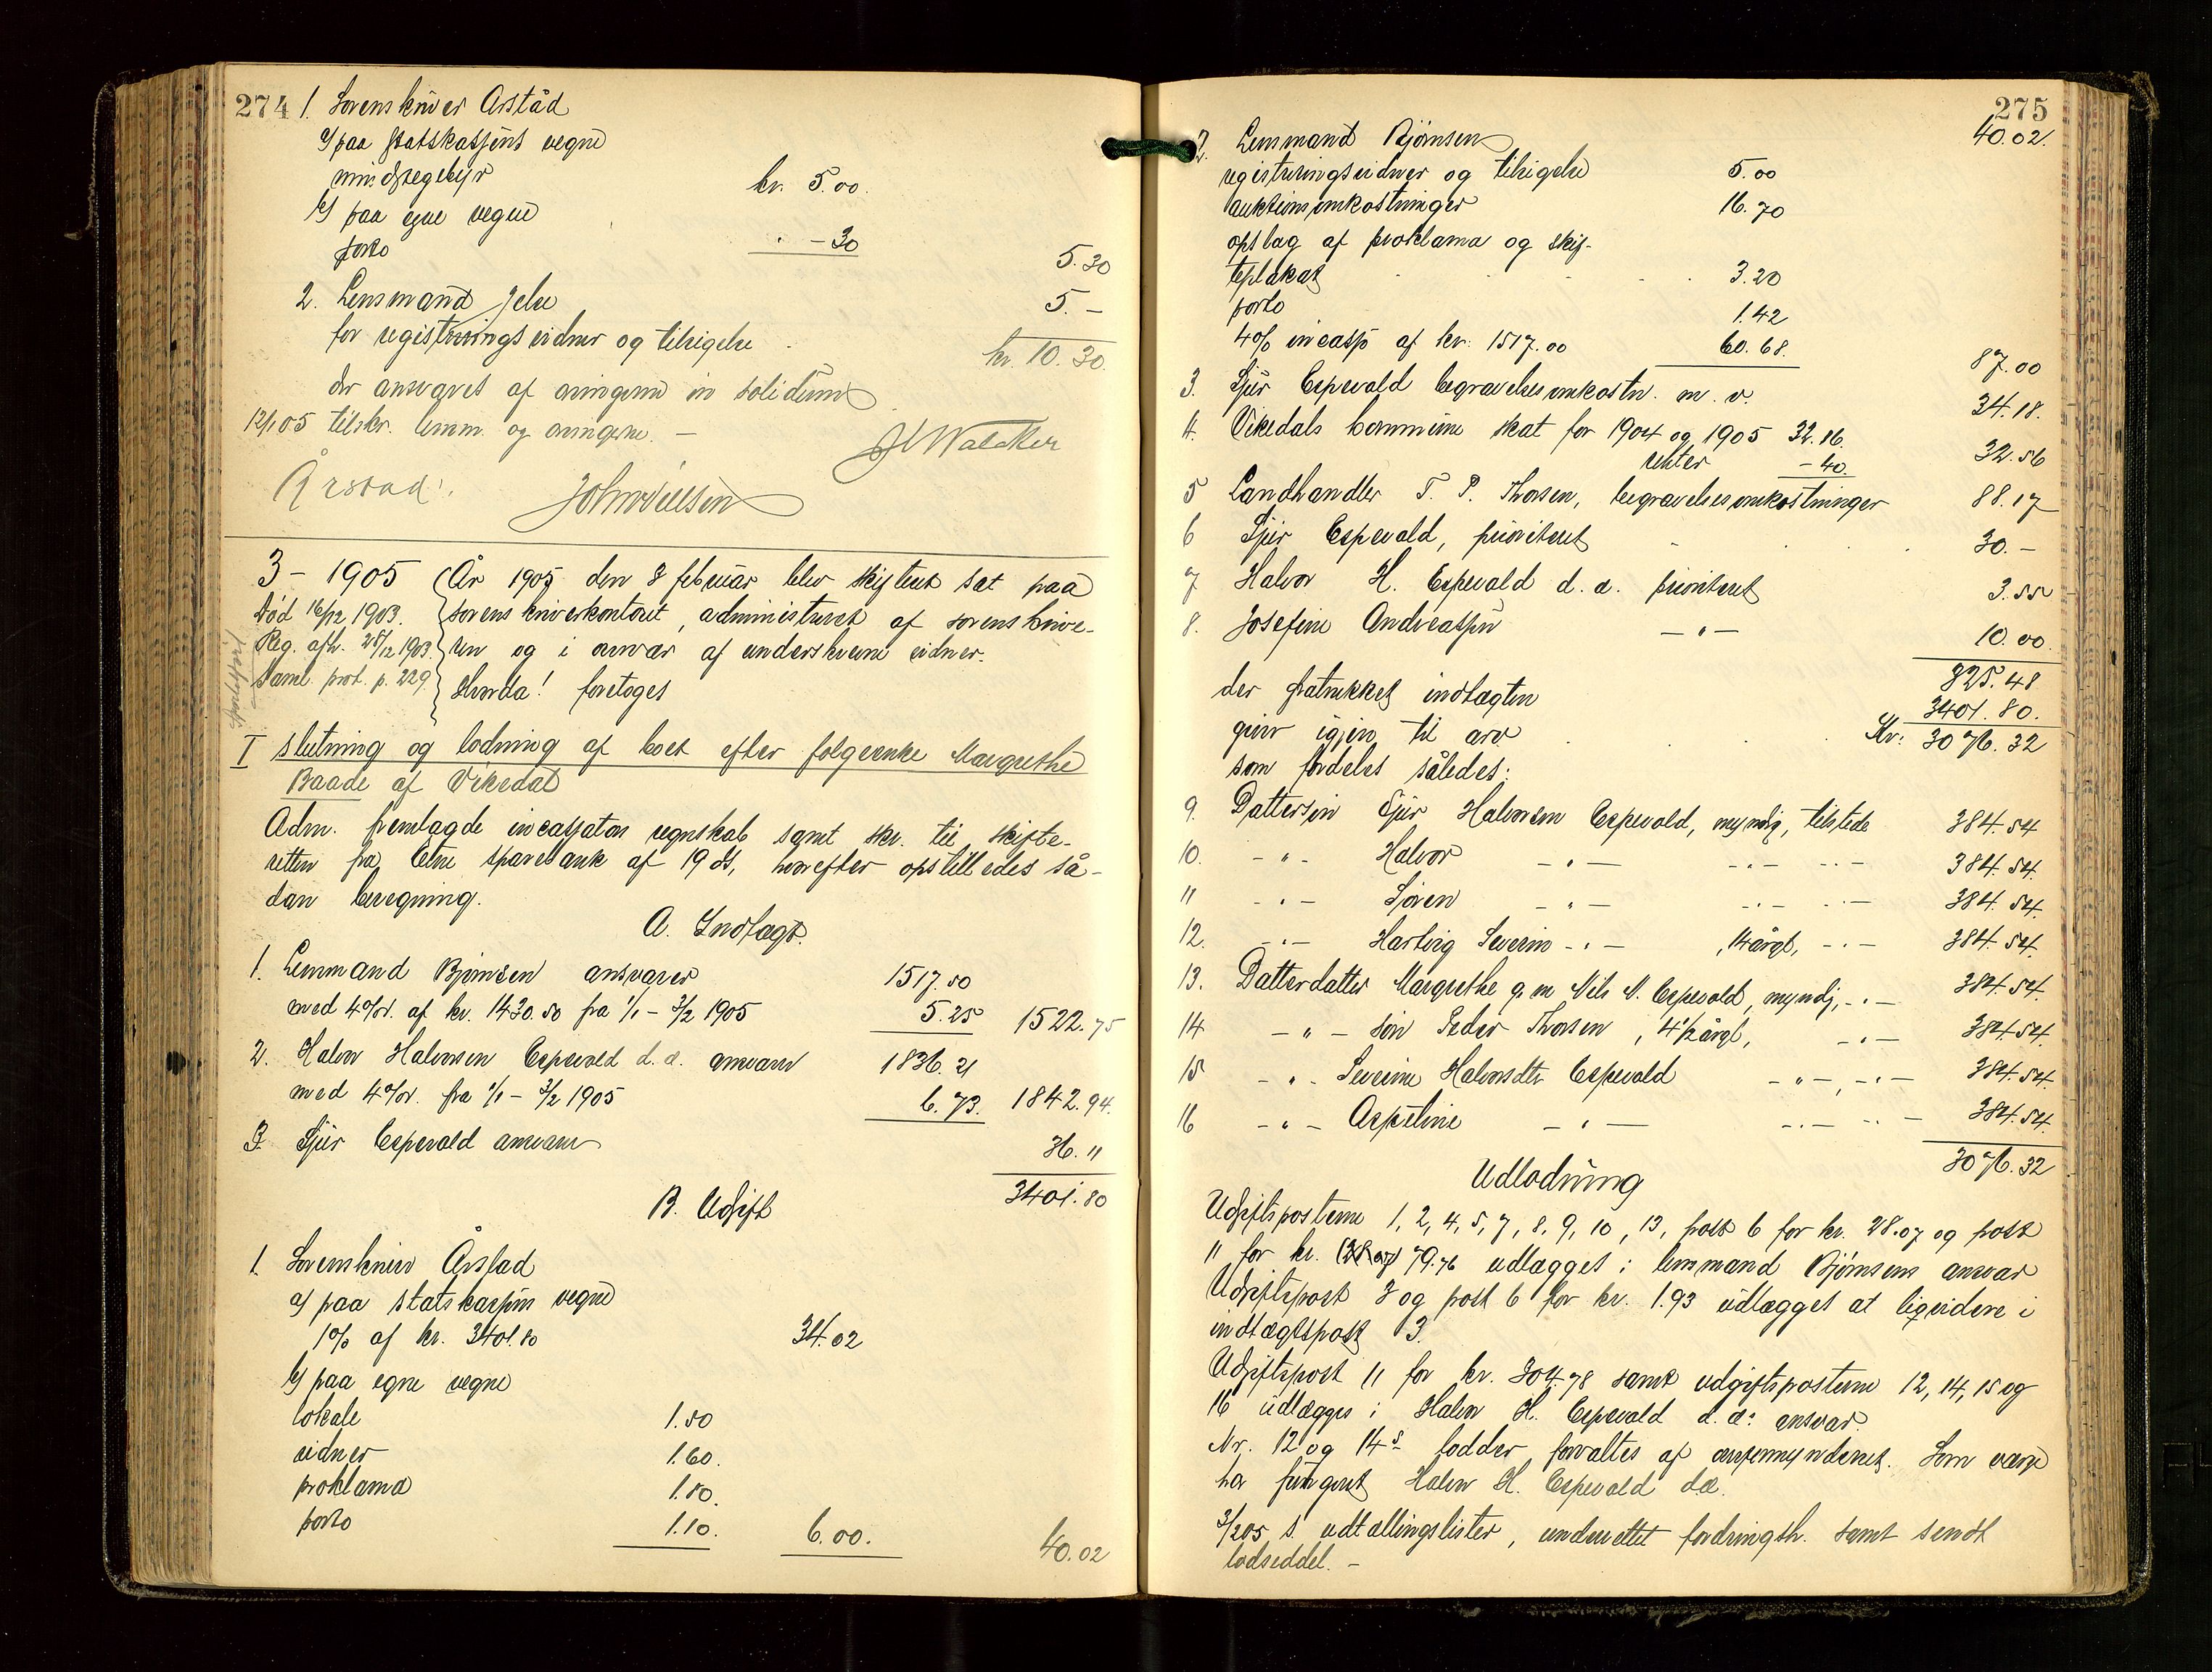 274
1. Sorenskriver Årstad
a/ paa statskassens vegne
mindstegebyr kr. 5.00.
b/ paa egne vegne
porto - 30 5.30
2. Lensmand Jelse 5. -
for registreringsvidner og tilsigelse
kr. 10.30.
der ansvares af arvingerne in solidum
12/1 05 tilskr. lensm. og arvingerne. —
Årstad.
3 - 1905 År 1905 den 3 februar blev skifteret sat paa
Död 16/12 1903. sorenskriverkontoret, administreret af sorenskrive-
Reg. afh. 28/12 1903. ren og i nærvær af underskrevne vidner.
Saml. prot. p. 229 Hvorda! foretoges
I slutning og lodning af boet efter folgeenke Margrethe
Baade af Vikedal
Adm. fremlagde incassators regnskab samt skr. til skifte-
retten fra Etne sparebank af 19 ds, hvorefter opstilledes så-
dan beregning.
A. Indtægt.
1. Lensmand Bjørnsen ansvarer 1517.50
med 4% r. af kr. 1430.50 fra 1/1 - 3/2 1905 5.25 1522.75
2. Halvor Halvorsen Espevold d. æ. ansvarer 1836.21
med 4% r. fra 1/1 - 3/2 1905 6.73. 1842.94.
3. Sjur Espevold ansvarer 36.11
3401.80
B. Udgift
1. Sorenskriver Årstad
a/ paa statskassens vegne
1% af kr. 3401.80 34.02
b/ paa egne vegne
lokale 1.50
vidner 1.60.
proklama 1.80.
porto 1.10. 6.00. 40.02
275
40.02.
2. Lensmand Bjørnsen
registreringsvidner og tilsigelse 5.00
auktionsomkostninger 16.70
opslag af proklama og skif-
teplakat 3.20
porto 1.42
4% incasso af kr. 1517.00 60.68. 87.00
3. Sjur Espevold begravelsesomkostn. m. v. 34.18.
4. Vikedals kommune skat for 1904 og 1905 32.16.
renter - 40. 32.56
5 Landhandler T. P. Thorsen, begravelsesomkostninger 88.17
6 Sjur Espevold, prioriteret 30. -
7 Halvor H. Espevold d. æ. prioriteret 3.55
8. Josefine Andreassen — " — 10.00
325.48
der fratrukket indtægten 3401.80.
giver igjen til arv Kr: 3076.32
som fordeles således:
9. Dattersøn Sjur Halvorsen Espevold, myndig, tilstede 384.54
10. - " - Halvor - " - - " - - " - 384.54.
11 - " - Søren - " - - " - - " - 384.54.
12. - " - Hartvig Severin - " - , 14 årgl, - " - 384.54.
13. Datterdatter Margrethe g. m Nils N. Espevold, myndig, - " - 384.54.
14 - " - søn Peder Thorsen, 4 1/2 årgl, - " - 384.54.
15 - " - Severine Halvorsdtr Espevold - " - , - " - 384.54.
16 - " - Asseline - " - - " - - " - 384.54.
3076.32
Udlodning
Udgiftsposterne 1, 2, 4, 5, 7, 8, 9, 10, 13, post 6 for kr. 28.07 og post
11 for kr. 79.76 udlægges i lensmand Bjørnsens ansvar
Udgiftspost 3 og post 6 for kr. 1.93 udlægges at liqvidere i
indtægtspost 3.
Udgiftspost 11 for kr. 304.78 samt udgiftsposterne 12, 14, 15 og
16 udlægges i Halvor H. Espevold d. æs ansvar.
Nr. 12 og 14s lodder forvaltes af overformynderiet. Som værge
har fungeret Halvor H. Espevold d.æ.
3/2 05 s. udtællingslister, underrettet fordringsh. samt sendt
lodseddel. —